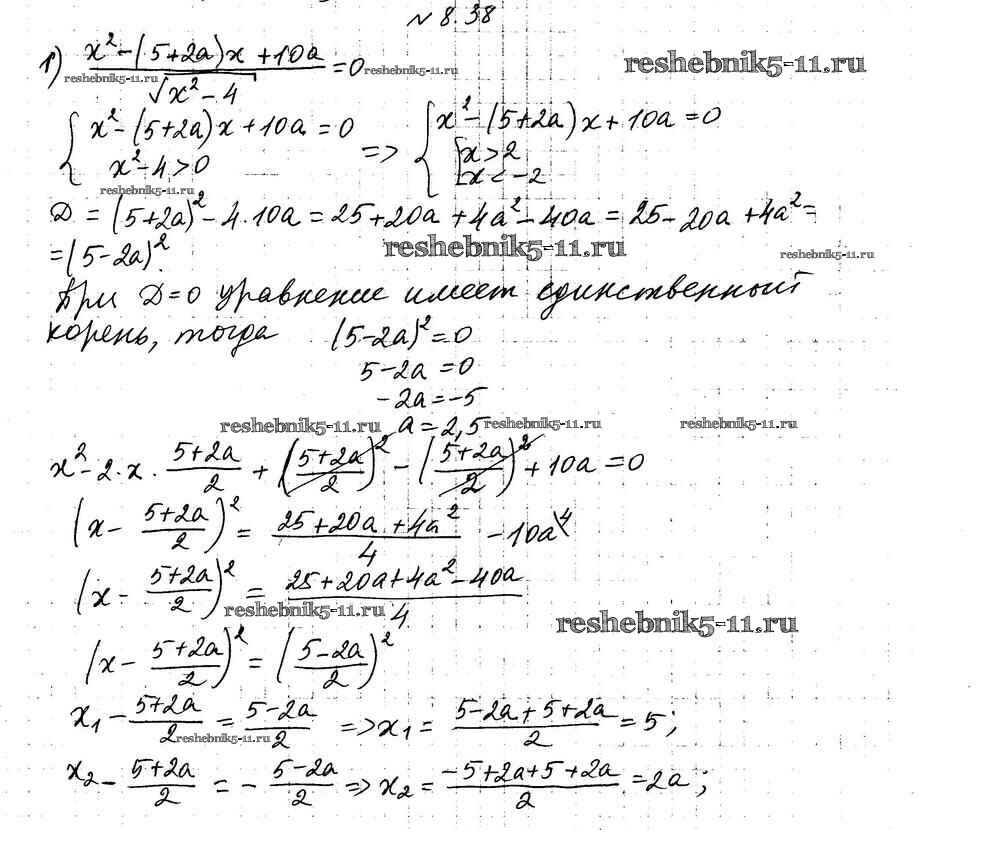 № 8.38
1) (x² − (5+2a)x + 10a)/√(x² − 4) = 0
reshebnik5-11.ru reshebnik5-11.ru reshebnik5-11.ru
{ x² − (5+2a)x + 10a = 0 ; x² − 4 > 0 => { x² − (5+2a)x + 10a = 0 ; [ x > 2 ; x < −2
reshebnik5-11.ru
D = (5+2a)² − 4·10a = 25 + 20a + 4a² − 40a = 25 − 20a + 4a² =
reshebnik5-11.ru reshebnik5-11.ru
= (5−2a)².
При D=0 уравнение имеет единственный
корень, тогда (5−2a)² = 0
5−2a = 0
−2a = −5
a = 2,5
reshebnik5-11.ru reshebnik5-11.ru reshebnik5-11.ru
x² − 2·x·(5+2a)/2 + ((5+2a)/2)² − ((5+2a)/2)² + 10a = 0
(x − (5+2a)/2)² = (25 + 20a + 4a²)/4 − 10a\4
(x − (5+2a)/2)² = (25 + 20a + 4a² − 40a)/4
reshebnik5-11.ru reshebnik5-11.ru
(x − (5+2a)/2)² = ((5−2a)/2)²
x₁ − (5+2a)/2 = (5−2a)/2 => x₁ = (5−2a+5+2a)/2 = 5;
reshebnik5-11.ru
x₂ − (5+2a)/2 = − (5−2a)/2 => x₂ = (−5+2a+5+2a)/2 = 2a;